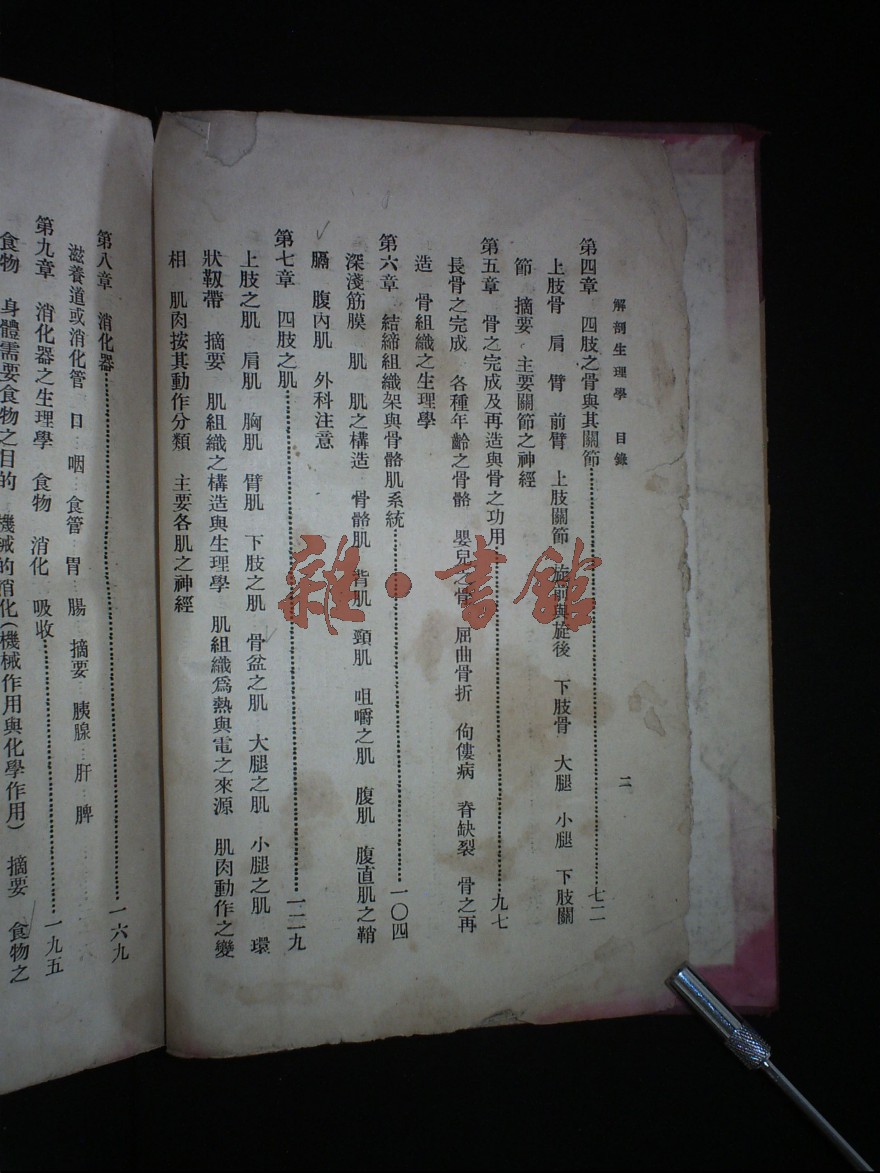 解剖生理學 目錄 二
第四章 四肢之骨與其關節 七二
上肢骨 肩 臂 前臂 上肢關節 旋前與旋後 下肢骨 大腿 小腿 下肢關
節 摘要 主要關節之神經
第五章 骨之完成及再造與骨之功用 九七
長骨之完成 各種年齡之骨骼 嬰兒之骨 屈曲骨折 佝僂病 脊缺裂 骨之再
造 骨組織之生理學
第六章 結締組織架與骨骼肌系統 一〇四
深淺筋膜 肌 肌之構造 骨骼肌 背肌 頸肌 咀嚼之肌 腹肌 腹直肌之鞘
膈 腹內肌 外科注意
第七章 四肢之肌 一二九
上肢之肌 肩肌 胸肌 臂肌 下肢之肌 骨盆之肌 大腿之肌 小腿之肌 環
狀韌帶 摘要 肌組織之構造與生理學 肌組織爲熱與電之來源 肌肉動作之變
相 肌肉按其動作分類 主要各肌之神經
第八章 消化器 一六九
滋養道或消化管 口 咽 食管 胃 腸 摘要 胰腺 肝 脾
第九章 消化器之生理學 食物 消化 吸收 一九五
食物 身體需要食物之目的 機械的消化(機械作用與化學作用) 摘要 食物之
雜·書館